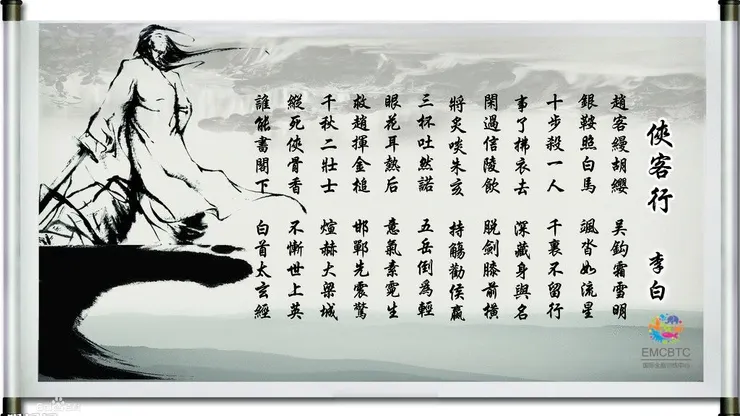 俠客行 李白
趙客縵胡纓 吳鈎霜雪明
銀鞍照白馬 颯沓如流星
十步殺一人 千裏不留行
事了拂衣去 深藏身與名
閑過信陵飲 脫劍膝前橫
將炙啖朱亥 持觴勸侯嬴
三杯吐然諾 五岳倒為輕
眼花耳熱后 意氣素霓生
救趙揮金槌 邯鄲先震驚
千秋二壯士 煊赫大梁城
縱死俠骨香 不慚世上英
誰能書閣下 白首太玄經
EMCBTC